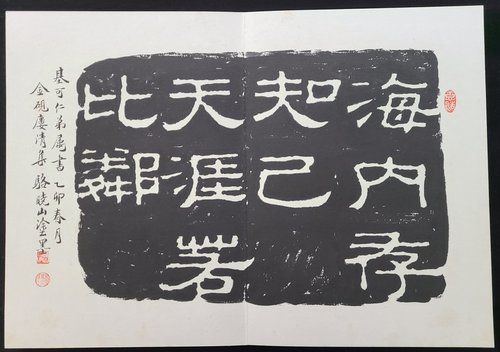 海内存
知己
天涯若
比鄰
基可仁弟属書 乙卯春月
金硯廔清集 駱曉山塗墨